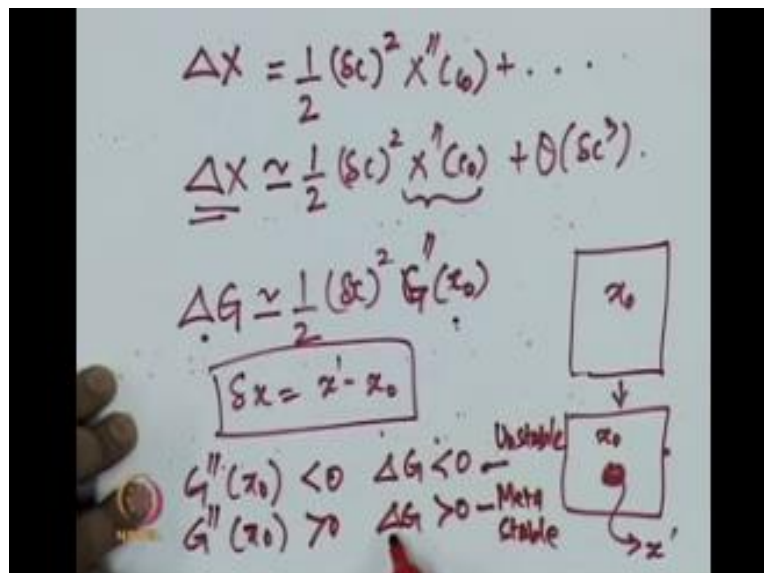 ΔX = 1/2 (δc)² X''(c₀) + . . . .
ΔX ≃ 1/2 (δc)² X''(c₀) + O(δc³).
ΔG ≃ 1/2 (δx)² G''(x₀)
δx = x' - x₀
G''(x₀) < 0 ΔG < 0 – Unstable
G''(x₀) > 0 ΔG > 0 – Meta stable
x₀
x₀
x'